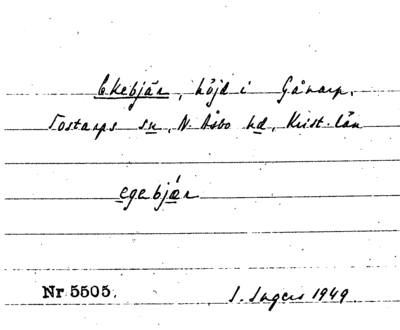 Ekebjär, höjd i Gånarp,
Tostarps sn, N. Åsbo hd, Krist. län
egebjær
Nr 5505. S. Ingers 1949